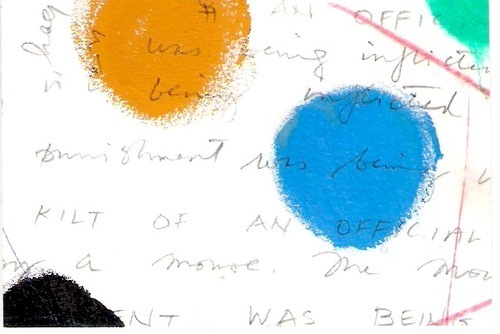 AN OFFIC
was being inflicte
being inflicted
punishment was being
KILT OF AN OFFICIAL
a mouse. The mou
ENT WAS BEING